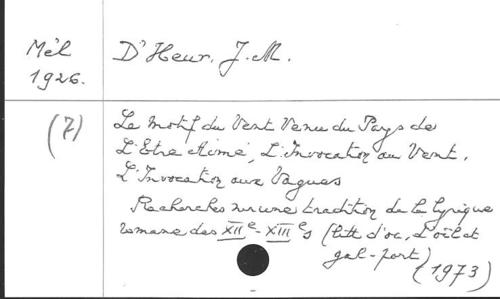 Mél D'Heur, J.M.
1926.
(7) Le Motif du Vent Venu du Pays de
L'Etre Aimé, L'Invocation au Vent,
L'Invocation aux Vagues
Recherches sur une tradition de la lyrique
romane des XIIe-XIIIe s (litt d'oc, d'oïl et
gal-port) (1973)